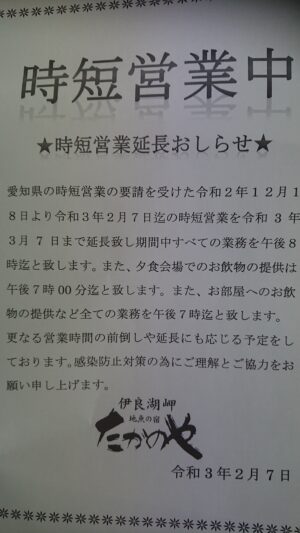 時短営業中
★時短営業延長おしらせ★
愛知県の時短営業の要請を受けた令和２年１２月１
８日より令和３年２月７日迄の時短営業を令和 ３ 年
３月 ７ 日まで延長致し期間中すべての業務を午後８
時迄と致します。また、夕食会場でのお飲物の提供は
午後７時 00 分迄と致します。また、お部屋へのお飲
物の提供など全ての業務を午後７時迄と致します。
更なる営業時間の前倒しや延長にも応じる予定をし
ております。感染防止対策の為にご理解とご協力をお
願い申し上げます。
伊良湖岬
地魚の宿
たかのや
令和３年２月７日